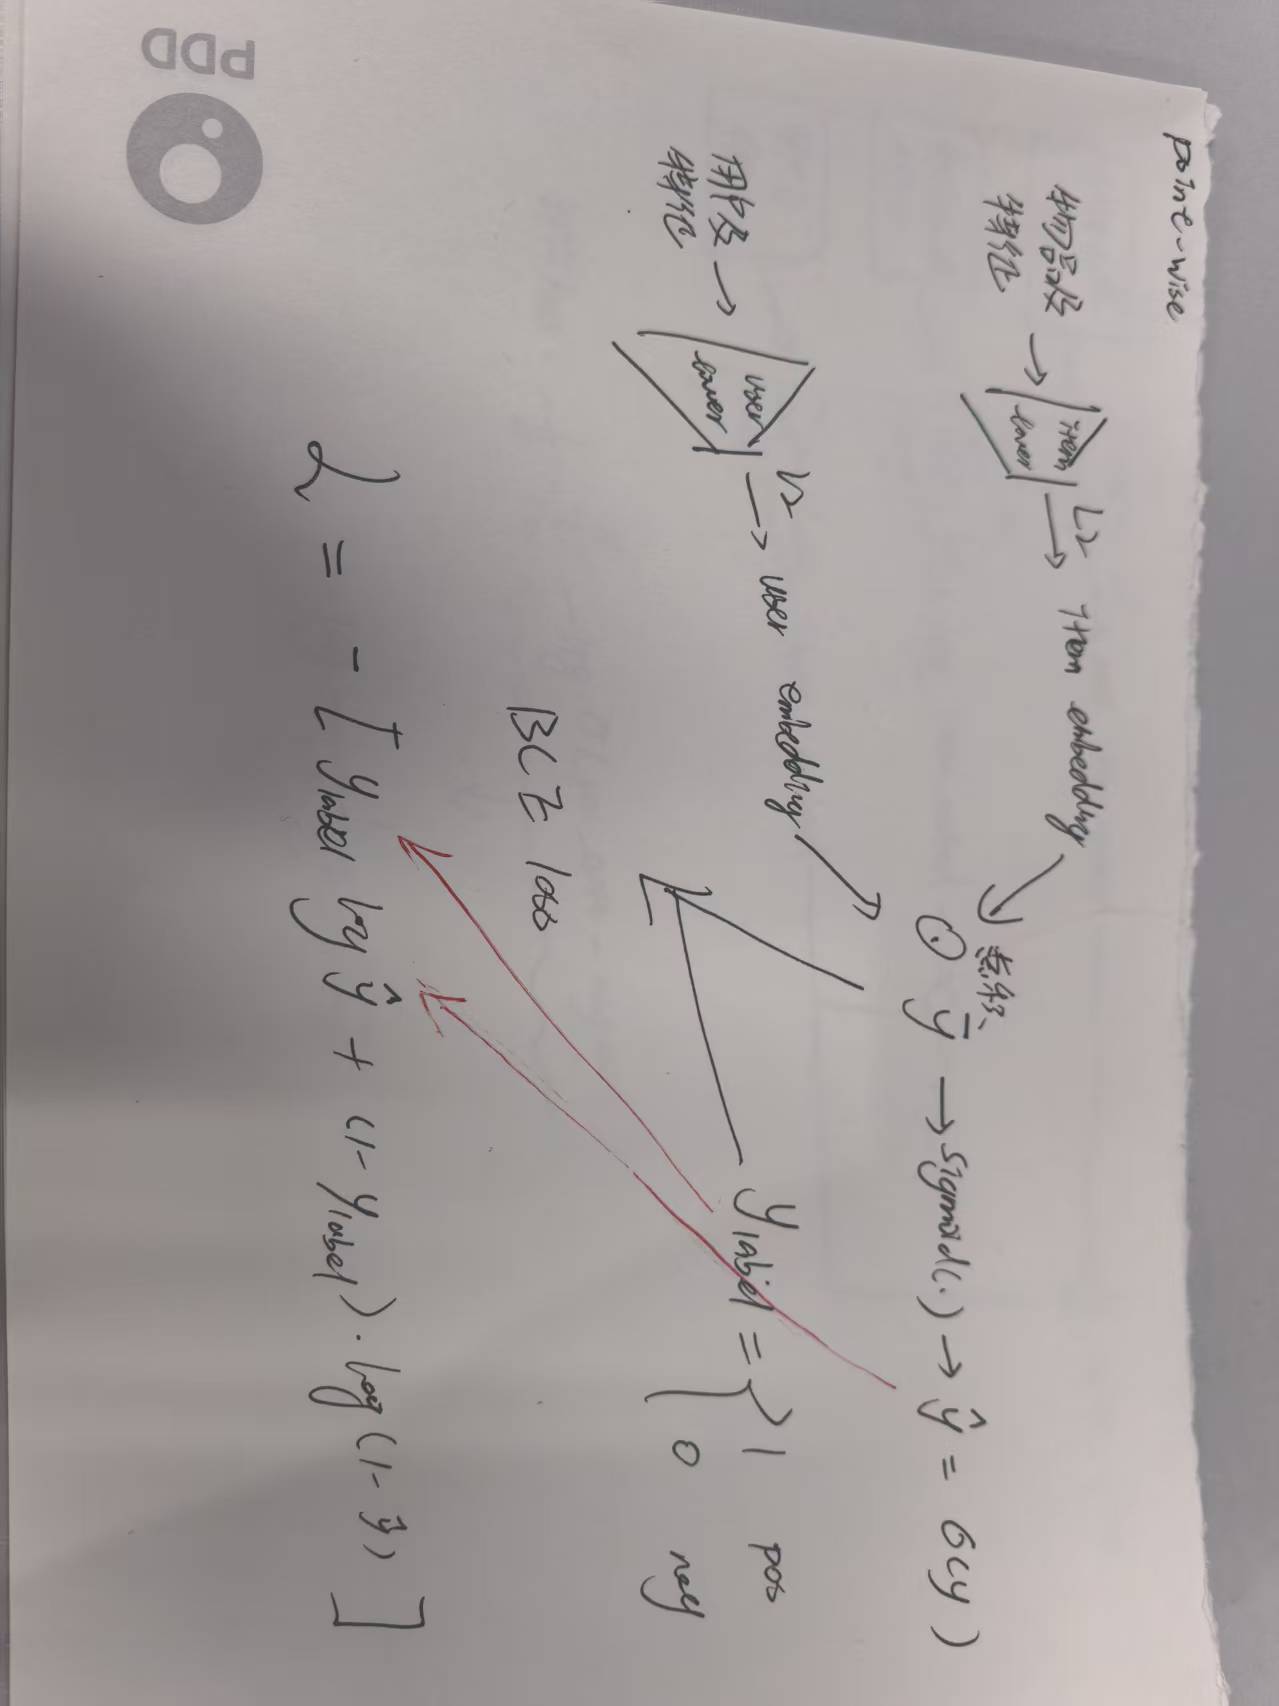 point-wise
物品及
特征
item
tower
L2
item embedding
点积
⊙ ȳ → sigmoid(·) → ŷ = σ(y)
用户及
特征
user
tower
L2
user embedding
y_label = { 1 pos
0 neg
BCE loss
L = -[y_label log ŷ + (1-y_label)·log(1-ŷ)]
PDD